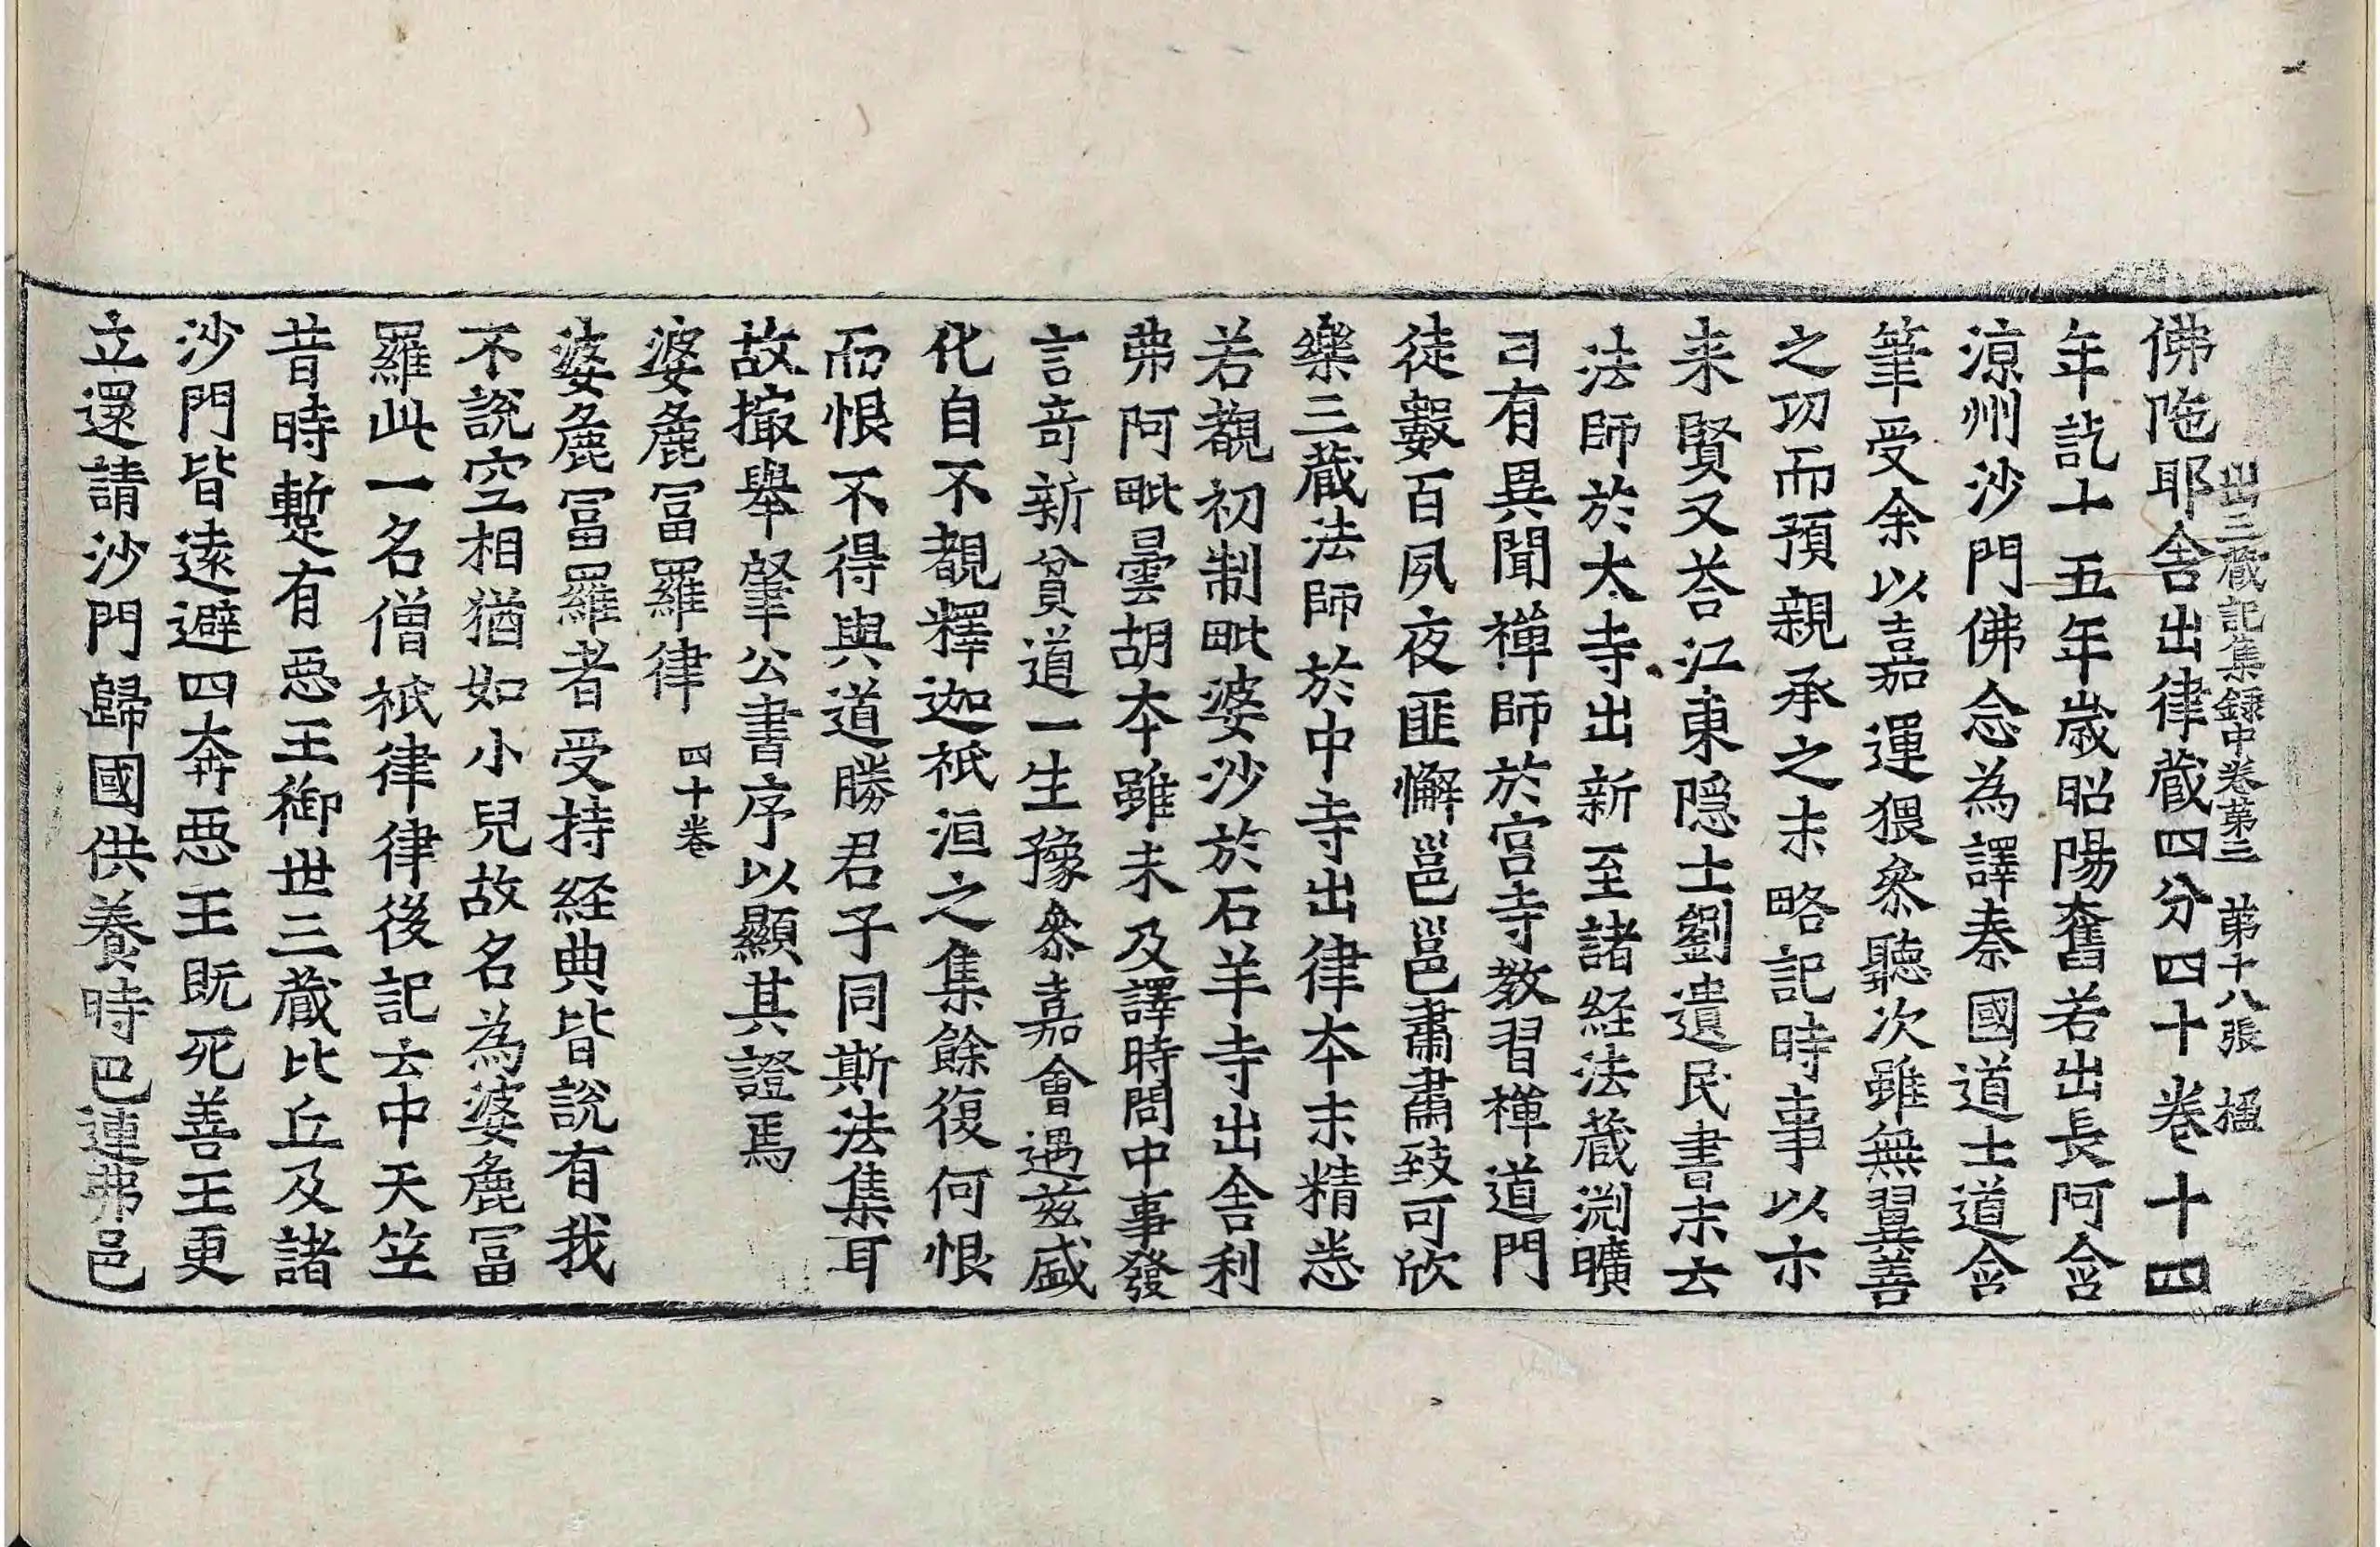 出三藏記集録中卷第三 第十八張 楹
佛陁耶舎出律蔵四分四十卷十四
年訖十五年歳昭陽奮若出長阿含
涼州沙門佛念為譯秦國道士道含
筆受余以嘉運猥叅聽次雖無翼善
之功而預親承之末略記時事以示
来賢又荅江東隠士劉遺民書末云
法師於大寺出新至諸経法蔵渕曠
日有異聞禅師於宮寺教習禅道門
徒數百夙夜匪懈邕邕肅肅致可欣
樂三蔵法師於中寺出律本末精悉
若覩初制毗婆沙於石羊寺出舎利
弗阿毗曇胡本雖未及譯時問中事發
言竒新貧道一生豫叅嘉會遇兹盛
化自不覩釋迦祇洹之集餘復何恨
而恨不得與道勝君子同斯法集耳
故撮舉肇公書序以顯其證焉
婆麁冨羅律 四十卷
婆麁冨羅者受持経典皆説有我
不説空相猶如小兒故名為婆麁冨
羅此一名僧祇律律後記云中天竺
昔時蹔有惡王御世三蔵比丘及諸
沙門皆遠避四奔惡王既死善王更
立還請沙門歸國供養時巴連弗邑